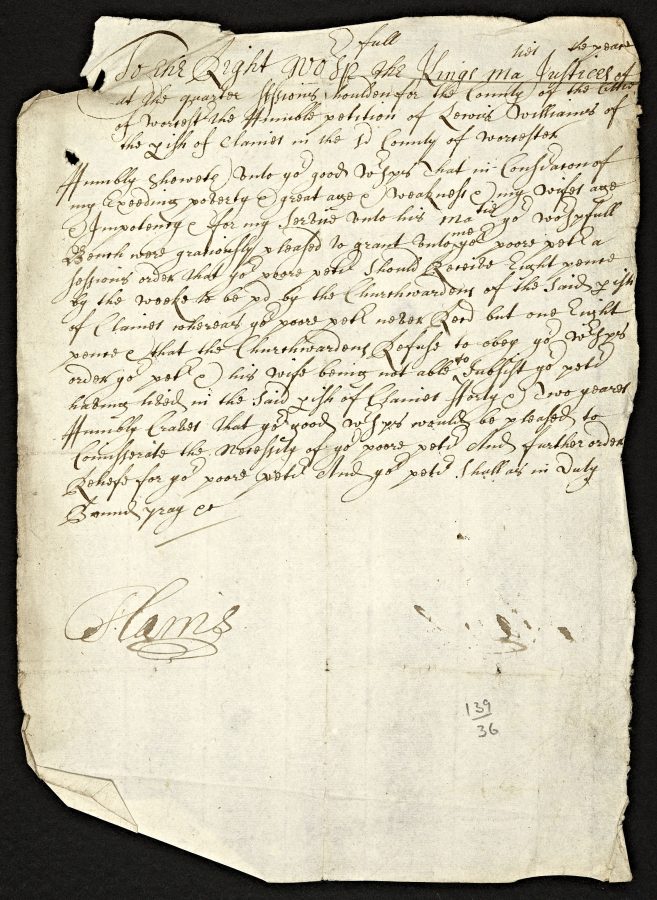 To the Right Wosp full the Kings Ma ties Justices of the peace
at the quarter sessions houlden for the County of the Cittie
of Worcest the Humble petition of Lewis Williams of
the pish of Claines in the sd County of Worcester
Humbly Sheweth unto yor good Wspps that in Considracon of
my Exceeding poverty & great age & weakness & my wifes age
& Impotency & for my Service unto his Matie yor Wospfull
Bench were graciously pleased to grant unto me yor poore petr a
sessions order that yor poore petr Should Receive Eight pence
by the weeke to be pd by the Churchwardens of the Said pish
of Claines whereas yor poore petr never Recd but one Eight
pence & that the Churchwardens Refuse to obey yor Wspps
order yor petr & his wife being not able to Subsist yor petr
having lived in the Said pish of Claines fforty & two yeares
Humbly Craves that yor good Wspps would be pleased to
the Necessity of yor poore petr And further order
Releife for yor poore petr And yor petr Shall as in Duty
Bound pray &c
Claines
139
36